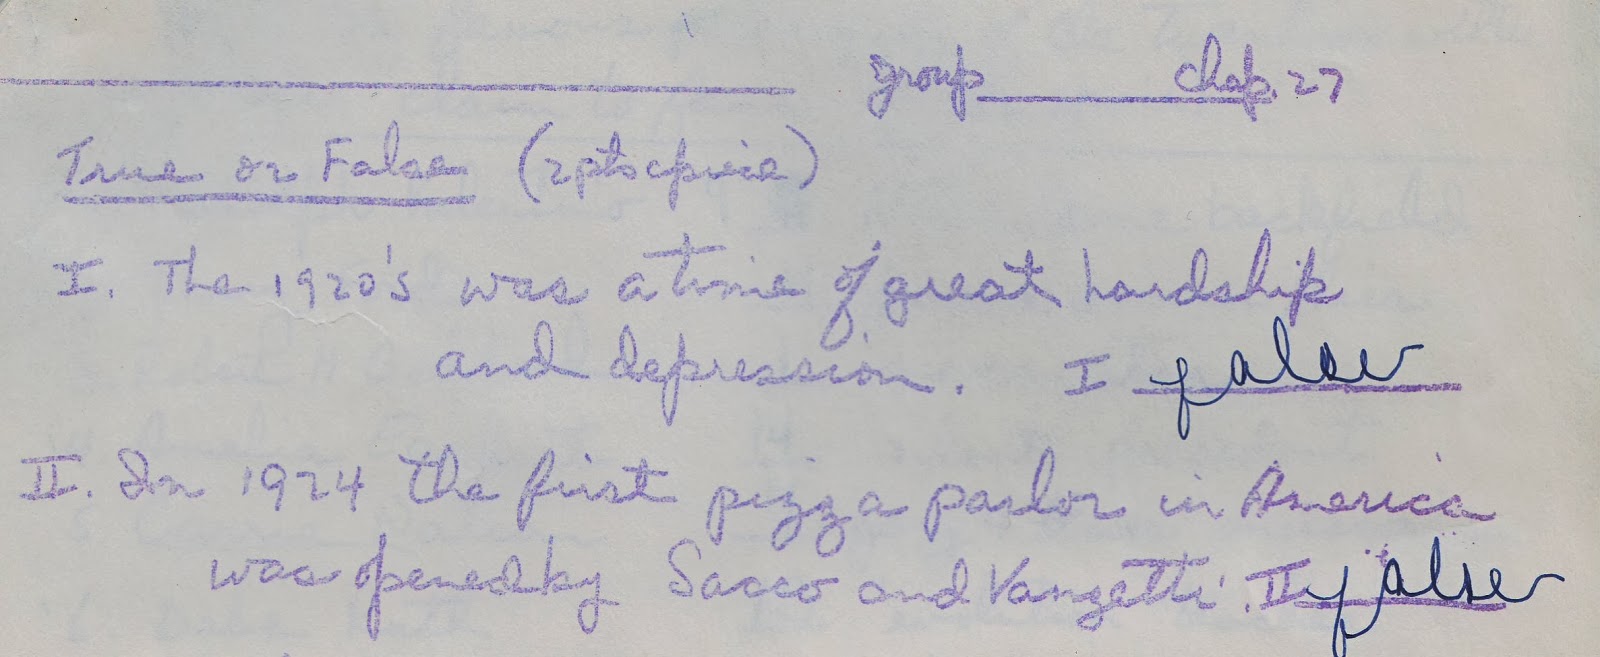 group chap. 27
True or False (2pts apiece)
I. The 1920's was a time of great hardship
and depression. I false
II. In 1924 the first pizza parlor in America
was opened by Sacco and Vanzetti. II false